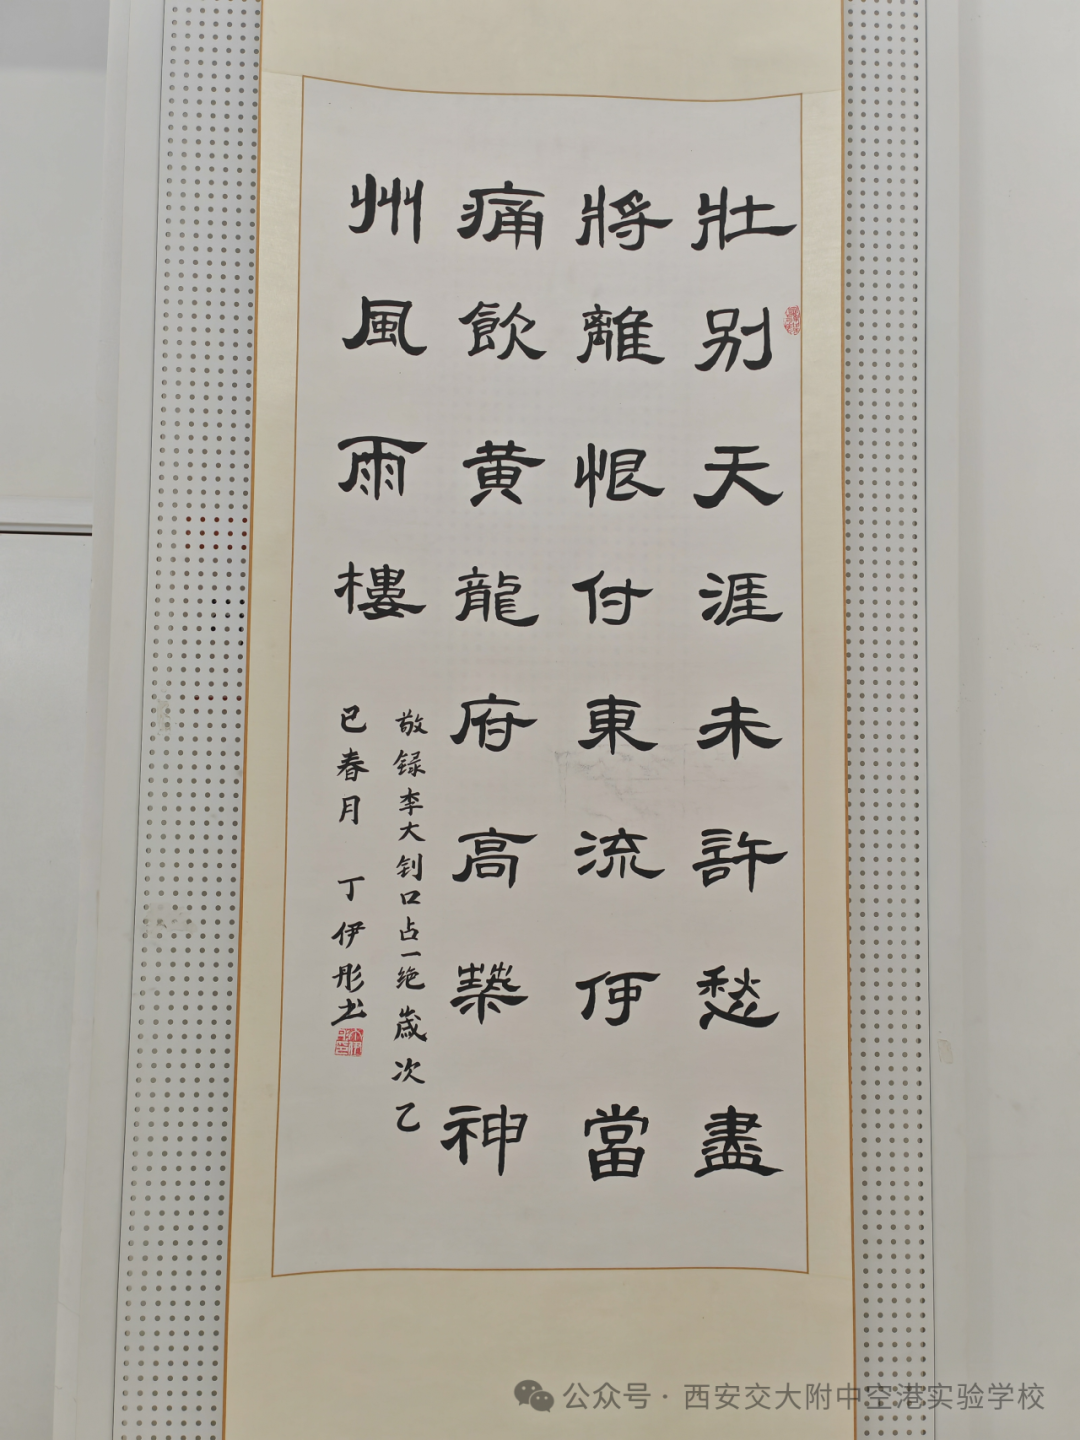 壯别天涯未許愁盡
將離恨付東流何當
痛飲黄龍府高築神
州風雨樓
敬録李大钊口占一绝歲次乙
巳春月 丁伊彤书
公众号·西安交大附中空港实验学校